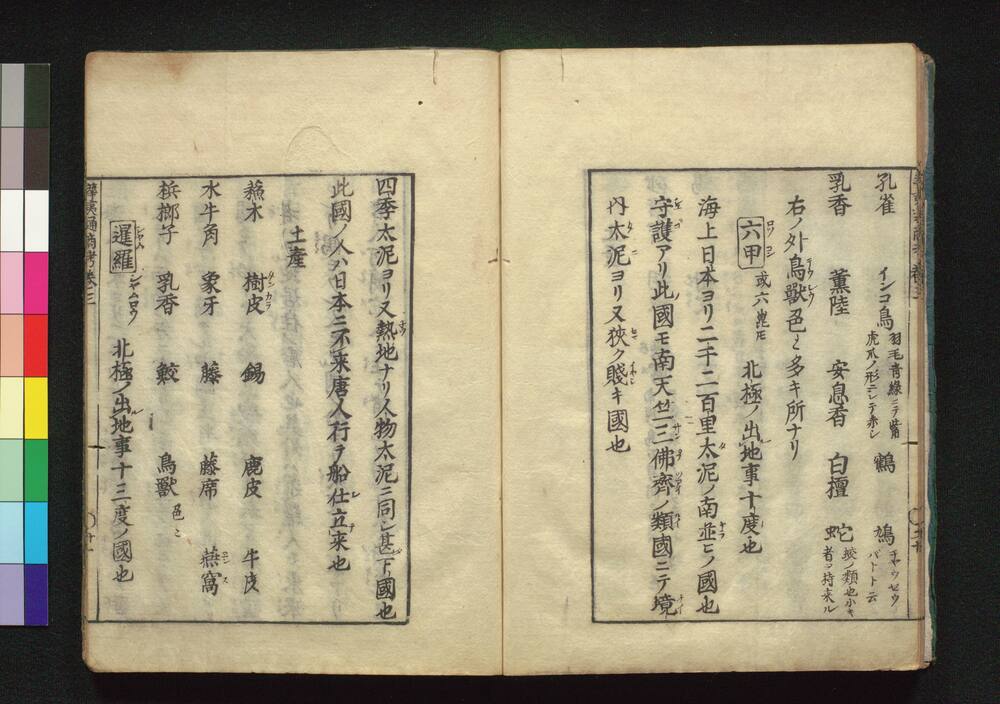 孔雀 インコ鳥 羽毛青緑ニテ觜
虎爪ノ形ニシテ赤シ 鶴 鳩 チヤウゼウ
バトト云
乳香 薫陸 安息香 白檀 蛇 蛟ノ類也小キ
者ヲ持来ル
右ノ外鳥獣色々多キ所ナリ
六甲 或六崑圧 北極ノ出地事十度也
海上日本ヨリ二千二百里太泥ノ南並ヒノ國也
守護アリ此國モ南天竺三佛齊ノ類國ニテ境
内太泥ヨリ又狹ク賤キ國也
四季太泥ヨリ又熱地ナリ人物太泥ニ同シ甚下國也
此國ノ人ハ日本ニ不来唐人行テ船仕立来也
土産
蘓木 樹皮 錫 鹿皮 牛皮
水牛角 象牙 藤 藤席 燕窩
梹榔子 乳香 鮫 鳥獣 色々
暹羅 シヤムロウ 北極ノ出地事十三度ノ國也